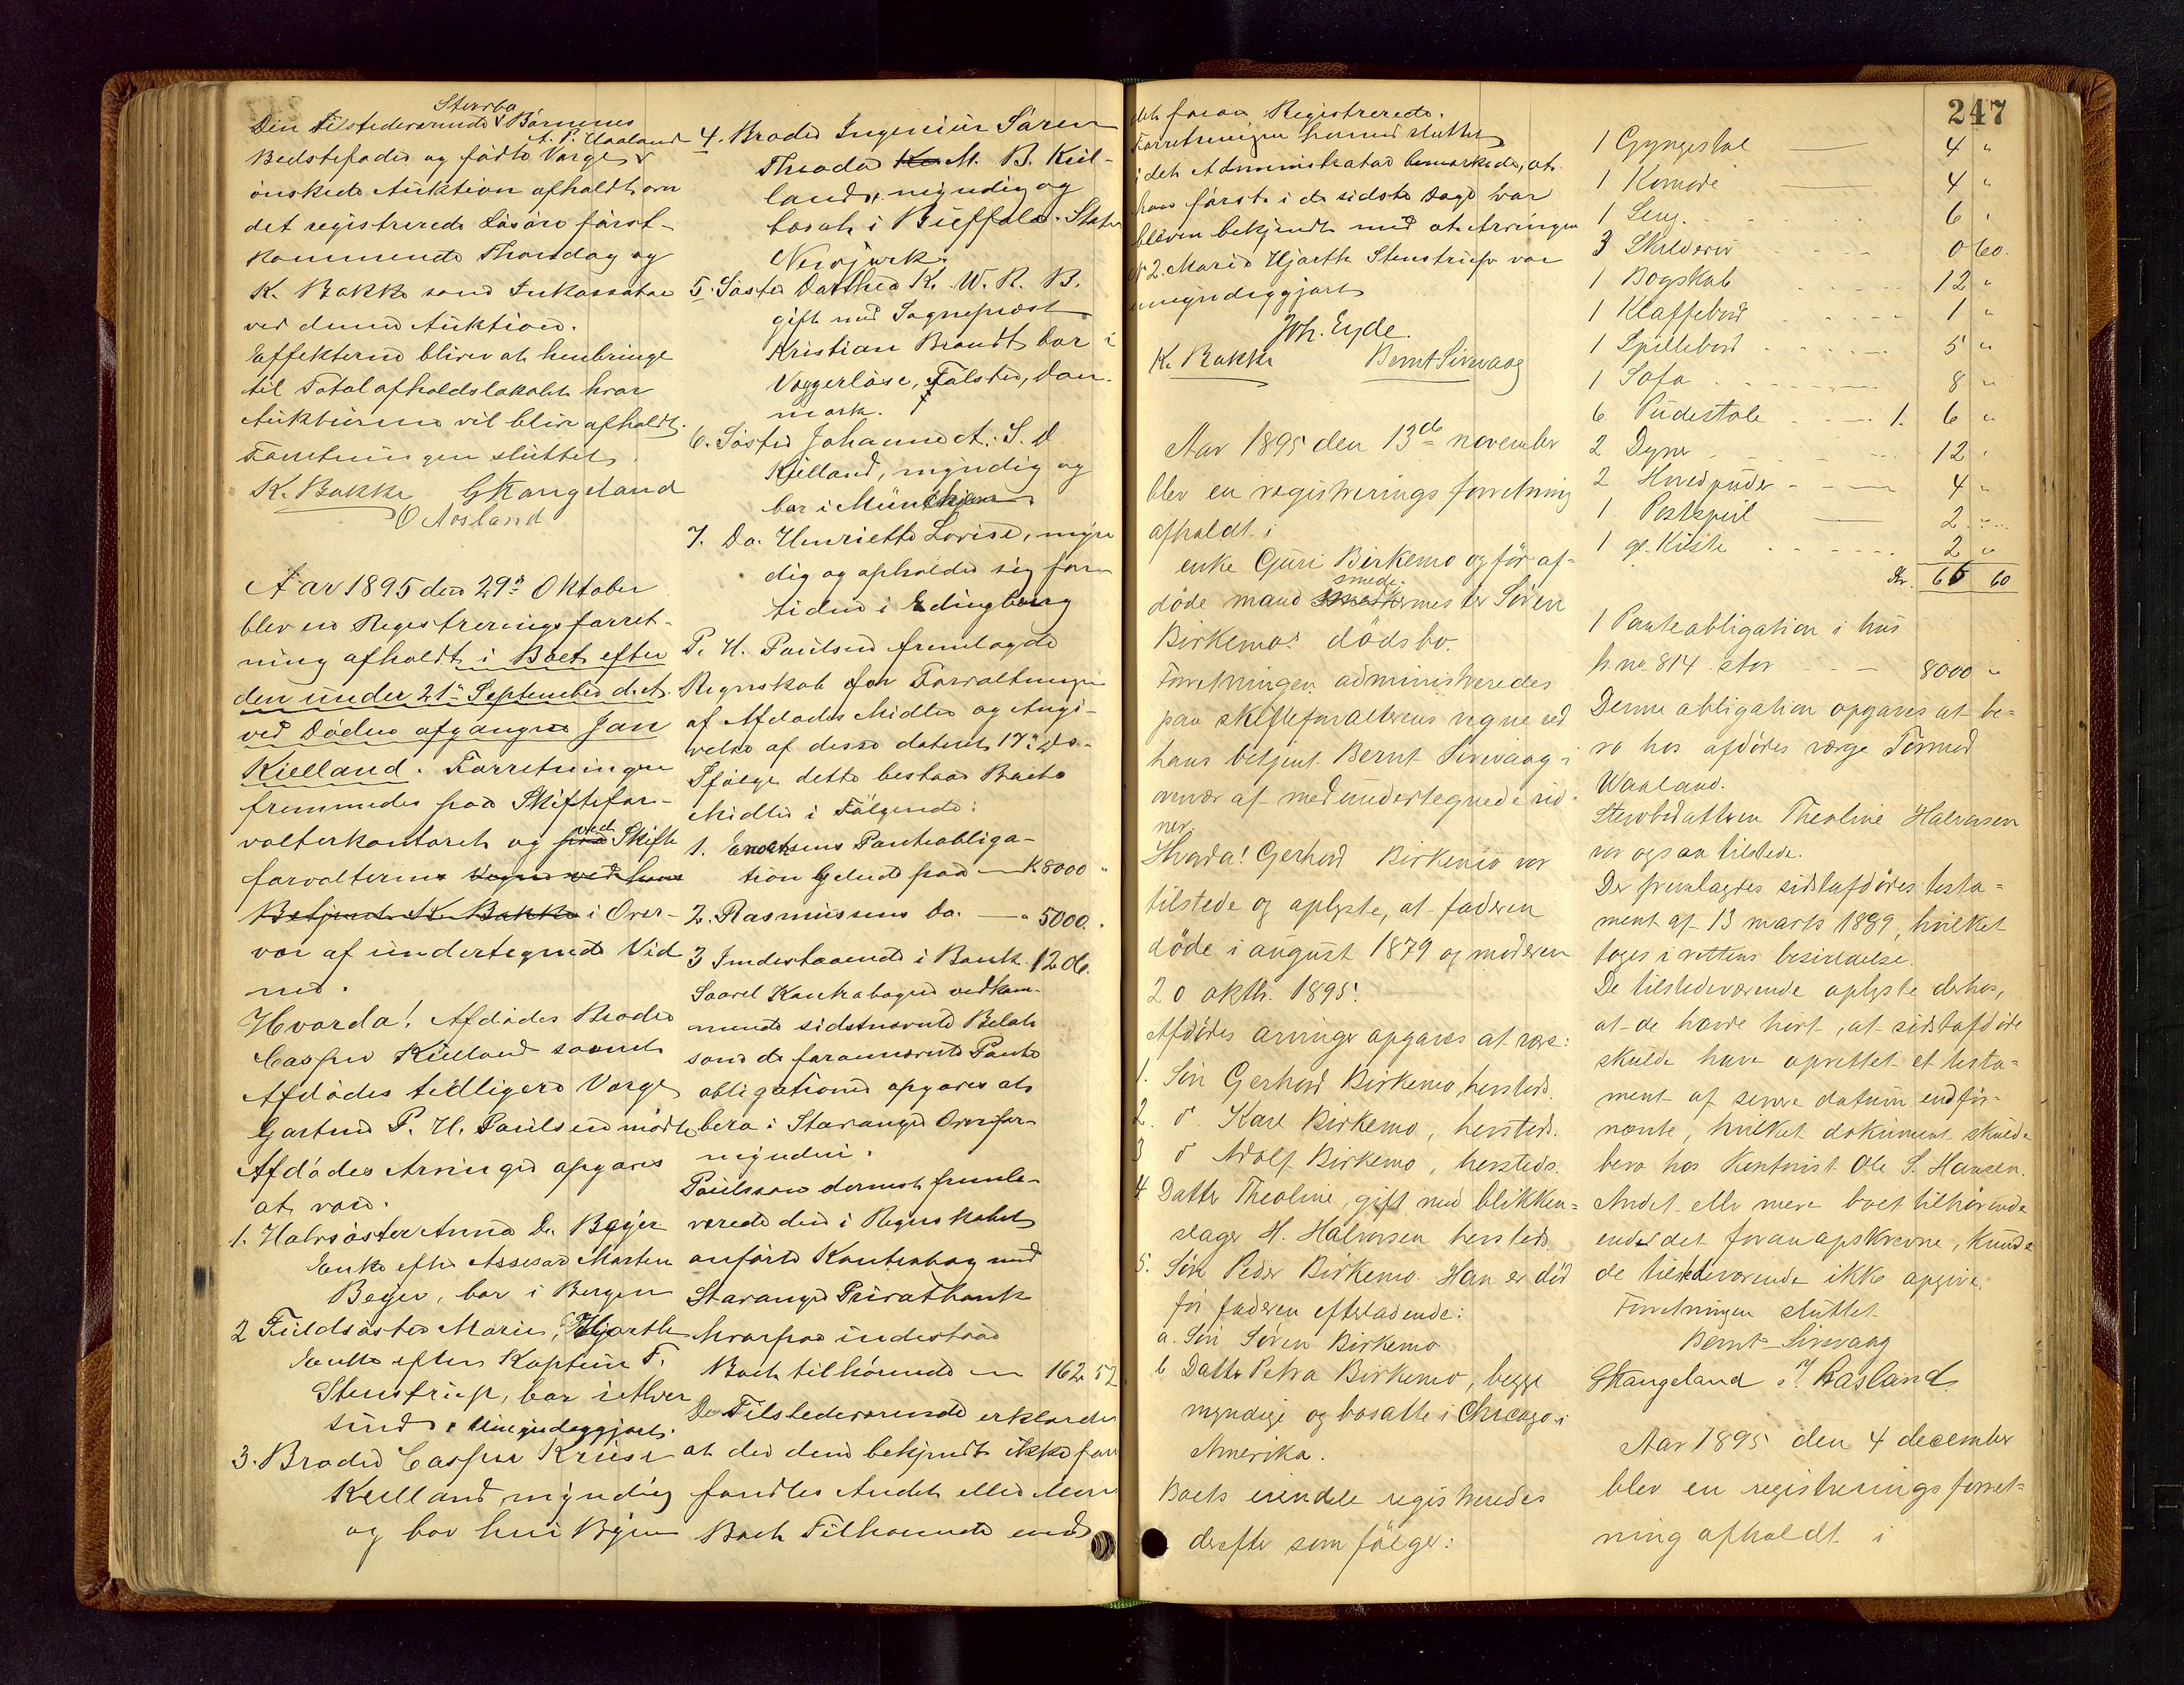 Den Tilstedeværende Stervbo Børnenes
Bedstefader og fødte Værge A. P. Uaaland
ønskede Auktion afholdt om
det registrerede Løsøre først-
kommende Thorsdag og
K. Bakke som Inkassator
ved denne Auktion.
Effekterne bliver at henbringe
til Totalafholdslokalet hvor
Auktionen vil blive afholdt.
Forretningen sluttet.
K. Bakke G Skangeland
O Aosland
Aar 1895 den 29de Oktober
blev en Registreringsforret-
ning afholdt i Boet efter
den under 21de September d. A.
ved Døden afgangne Jan
Kielland. Forretningen
fremmedes paa Skiftefor-
valterkontoret og ved Skifte
forvalteren Vegne ved hans
Betjent K. Bakke i Over-
vær af undertegnede Vid
ner.
Hvorda! Afdødes Broder
Casper Kielland samt
Afdødes tidligere Værge
Gartner P. H. Poulsen mødt
Afdødes Arvinger opgaves
at være.
1. Halvsøster Anna D. Beyer
Enke efter Assesor Morten
Beyer, bor i Bergen
2 Fuldsøster Marie, Hjorth
Enke efter Kaptein F.
Stenstrup, bor i Aker
sund. Umyndiggjort.
3. Broder Casper Kruse
Kielland, myndig
og bor her i Byen
4. Broder Ingeniør Søren
Theodor M. B. Kiel-
land, myndig og
bosat i Buffalo. Stat
Newjork.
5. Søster Dorthea K. W. R. B.
gift med Sogneprest
Kristian Brandt bor i
Væggerløse, Falster, Dan-
mark.
6. Søster Johanne A. S. D
Kielland, myndig og
bor i München
7. Do. Henriette Lovise, myn
dig og opholder sig for
tiden i Edingbourg
P. H. Poulsen fremlagde
Regnskab for Forvaltningen
af Afdødes Midler og Angi-
velse af disse dateret 17de ds.
Ifølge dette bestaar Boets
Midler i Følgende:
1. Enochsens Panteobliga-
tion Gelud paa K 8000 "
2. Rasmussens Do. " 5000.
3 Indestaaende i Bank 12 06.
Saavel Kontrabogen vedkom-
mende sidstnævnte Beløb
som de forannævnte Pante
obligationer opgaves at
bero i Stavanger Overfor-
mynderi.
Poulsen dernest fremle-
verede den i Regnskabet
anførte Kontrabog med
Stavanger Privatbank
hvorpaa indestaar
Boet tilhørende 162 52
De Tilstedeværende erklærede
at der dem bekjendt ikke fore
fandtes Andet eller Mere
Boet Tilhørende end
det foran Registrerede.
Forretningen hermed sluttet
idet Administrator bemærkede, at
han først i de sidste Dage var
bleven bekjendt med at Arvingen
No 2. Marie Hjorth Stenstrup var
umyndiggjort
Joh. Eyde.
K. Bakke Bernt Sirevaag
Aar 1895 den 13de november
blev en registreringsforretning
afholdt i
enke Guri Birkemo og før af-
døde mand smedemester Søren
Birkemos dødsbo.
Forretningen administreredes
paa skifteforvalterens vegne ved
hans betjent Bernt Sirevaag i
overvær af medundertegnede vid-
ner.
Hvorda! Gerhard Birkemo var
tilstede og oplyste, at faderen
døde i august 1879 og moderen
20 oktbr. 1895.
Afdødes arvinger opgaves at være:
1. Søn Gerhard Birkemo, hersteds.
2. do Karl Birkemo, hersteds.
3 do Adolf Birkemo, hersteds.
4 Datter Theoline, gift med blikken-
slager H. Halvorsen hersteds.
5. Søn Peder Birkemo. Han er død
før faderen efterladende:
a. Søn Søren Birkemo
b Datter Petra Birkemo, begge
myndige og bosatte i Chicago i
Amerika.
Boets eiendele registreredes
derefter som følger:
247
1 Gyngestol 4 "
1 Komode 4 "
1 Seng. 6 "
3 Skilderier 0 60.
1 Bogskab 12 "
1 Klaffebord 1 "
1 Spillebord 5 "
1 Sofa 8 "
6 Pudestole 1. 6 "
2 Dyner 12 "
2 Hovedpuder 4 "
1 Postspeil 2 "
1 gl. Kiste 2 "
Kr. 66 60
1 Panteobligation i hus
h no 814 stor 8000 "
Denne obligation opgaves at be-
ro hos afdødes værge Tormod
Waaland.
Stervbodatteren Theoline Halvorsen
var ogsaa tilstede.
Der fremlagdes sidstafdødes testa-
ment af 13 marts 1889, hvilket
toges i rettens besiddelse.
De tilstedeværende oplyste derhos,
at de havde hørt, at sidstafdøde
skulde have oprettet et testa-
ment af senere datum end før-
nævnte, hvilket dokument skulde
bero hos Kontorist Ole S. Hansen.
Andet eller mere boet tilhørende
end det foran opskrevne, kunde
de tilstedeværende ikke opgive.
Forretningen sluttet.
Bernt Sirevaag
G Skangeland Aasland
Aar 1895 den 4 december
blev en registreringsforret-
ning afholdt i